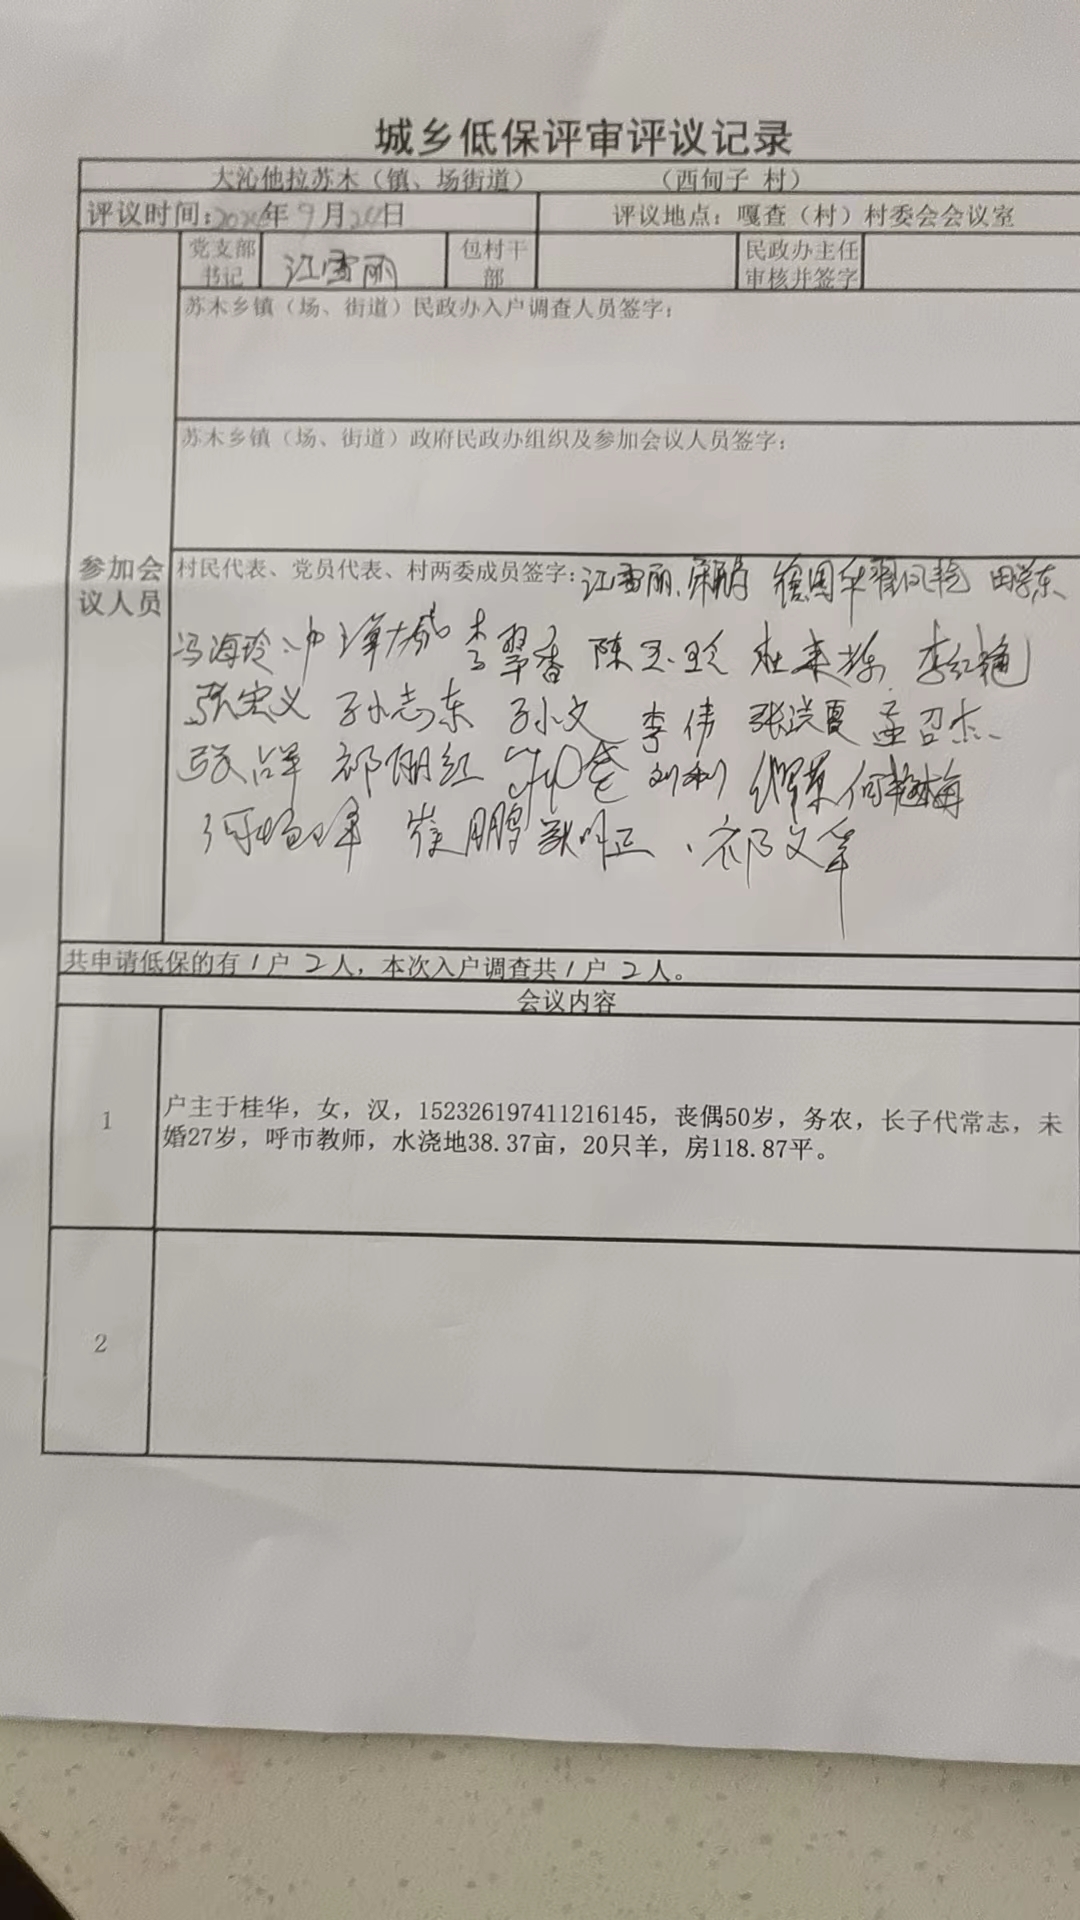 城乡低保评审评议记录
大沁他拉苏木（镇、场街道） （西甸子 村）
评议时间：2024年9月24日 评议地点：嘎查（村）村委会会议室
党支部书记 江雪丽 包村干部 民政办主任审核并签字
苏木乡镇（场、街道）民政办入户调查人员签字：
苏木乡镇（场、街道）政府民政办组织及参加会议人员签字：
参加会议人员
村民代表、党员代表、村两委成员签字：江雪丽、 翟凤艳 田学东
冯海玲 李翠香 陈玉玲 李红艳
张宏义 孙志东 孙文 李伟 张洪夏 孟召杰
张占军 祁丽红 刘利 何艳梅
崔鹏 祁文军
共申请低保的有1户2人，本次入户调查共1户2人。
会议内容
1
户主于桂华，女，汉，152326197411216145，丧偶50岁，务农，长子代常志，未
婚27岁，呼市教师，水浇地38.37亩，20只羊，房118.87平。
2